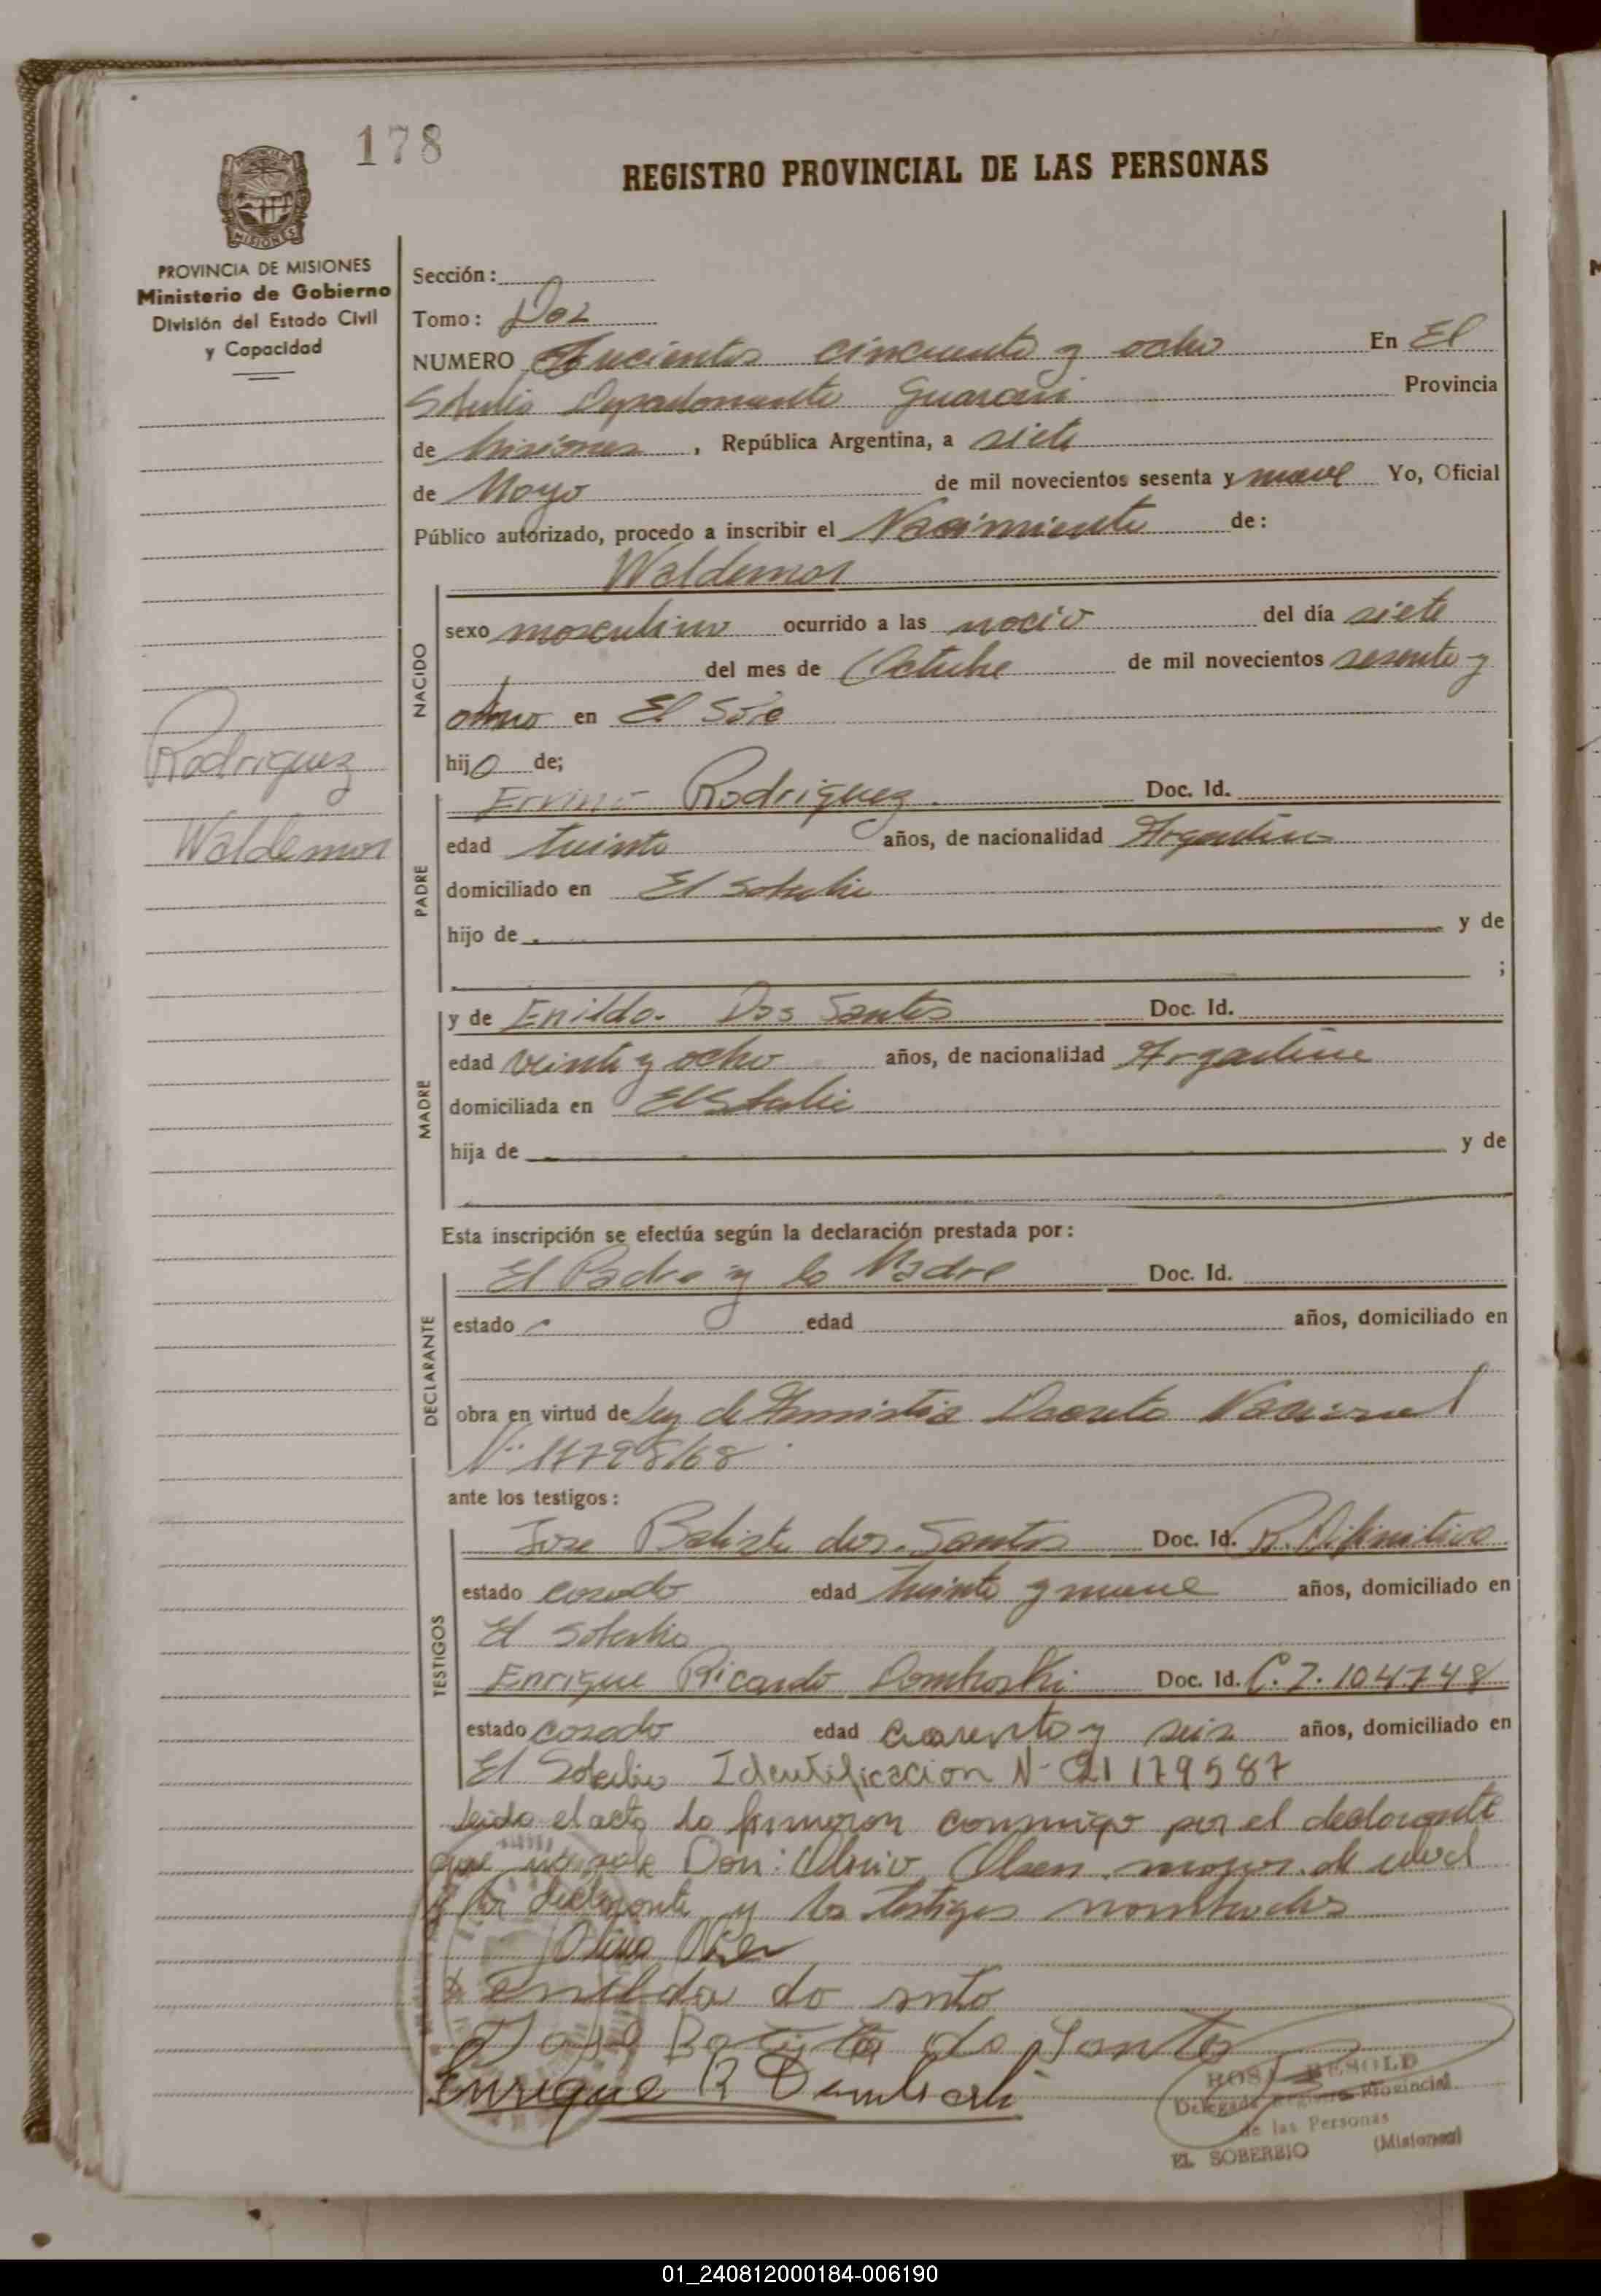 178
REGISTRO PROVINCIAL DE LAS PERSONAS
MISIONES
PROVINCIA DE MISIONES
Ministerio de Gobierno
División del Estado Civil
y Capacidad
Sección:
Tomo: Dos
NUMERO cincuenta y ocho En El
Departamento Guarani Provincia
de Misiones, República Argentina, a siete
de Mayo de mil novecientos sesenta y nueve Yo, Oficial
Público autorizado, procedo a inscribir el Nacimiento de:
Waldemar
NACIDO
sexo masculino ocurrido a las nació del día siete
del mes de Octubre de mil novecientos sesenta y
ocho en El
hijo de;
Rodriguez
Waldemar
PADRE
Ervino Rodriguez. Doc. Id.
edad treinta años, de nacionalidad Argentino
domiciliado en El Soberbio
hijo de y de
;
MADRE
y de Enilda. Dos Santos Doc. Id.
edad veinte y ocho años, de nacionalidad Argentina
domiciliada en El Soberbio
hija de y de
Esta inscripción se efectúa según la declaración prestada por:
DECLARANTE
El Padre y la Madre Doc. Id.
estado edad años, domiciliado en
obra en virtud de Ley de Amnistia Decreto Nacional
Nº 17798/68
ante los testigos:
TESTIGOS
Jose Batista dos Santos Doc. Id. Definitiva
estado casado edad treinta y nueve años, domiciliado en
El Soberbio
Enrique Ricardo Domhoski Doc. Id. C.I. 104748
estado casado edad cuarenta y seis años, domiciliado en
El Soberbio Identificacion N- 179587
Leida el acta la firmaron conmigo por el declarante
que Don: Olsen mayor de edad
y la declarante y los testigos nombrados
enilda do snto
Jose Batista do Santos
Enrique R
Delegada Registro Provincial
de las Personas
EL SOBERBIO (Misiones)
01_240812000184-006190